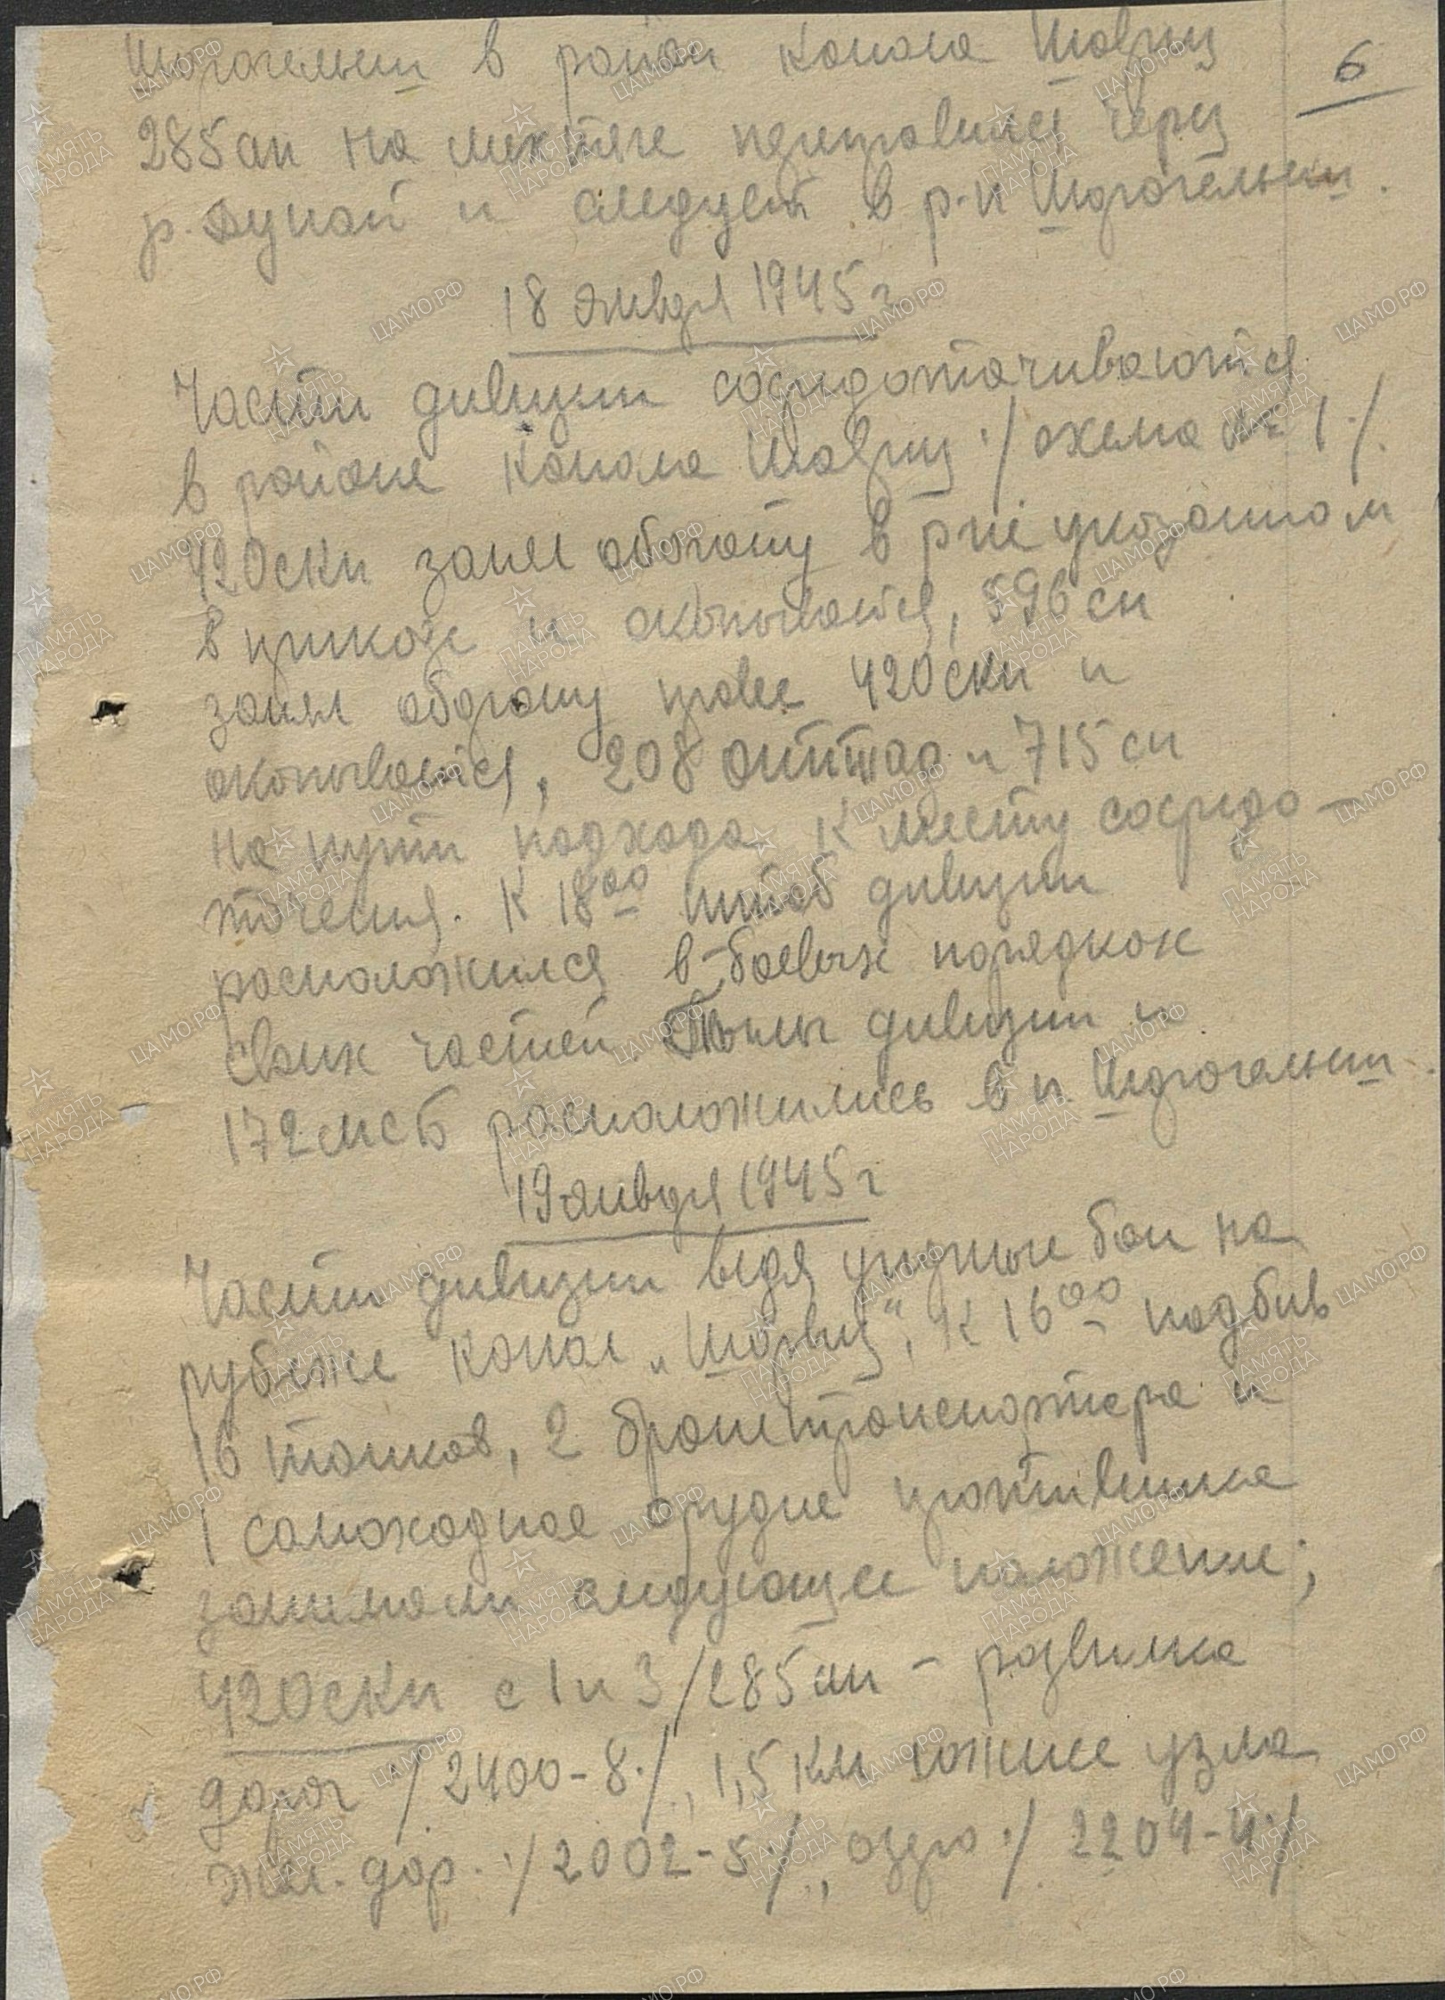 6
Шарогельеш в район канала Шарвиц
285 ап на мехтяге переправился через
р. Дунай и следует в р-н Шарогельеш.
18 января 1945 г
Части дивизии сосредотачиваются
в районе канала Шарвиц ·/ схема № 1 ·/.
420 скп занял оборону в р-не указанном
в приказе и окопывается, 596 сп
занял оборону правее 420 скп и
окопывается, 208 оиптад и 715 сп
на пути подхода к месту сосредо-
точения. К 18⁰⁰ штаб дивизии
расположился в боевых порядках
своих частей. Тылы дивизии и
172 мсб расположились в н. Шарогельеш.
19 января 1945 г
Части дивизии ведя упорные бои на
рубеже канал „Шарвиц", к 16⁰⁰ подбив
16 танков, 2 бронетранспортера и
1 самоходное орудие противника
занимали следующее положение;
420 скп с 1 и 3/285 ап - развилка
дорог /2400-8·/, 1,5 км южнее узла
жел. дор. ·/2002-5·/, озеро ·/ 2204-4·/